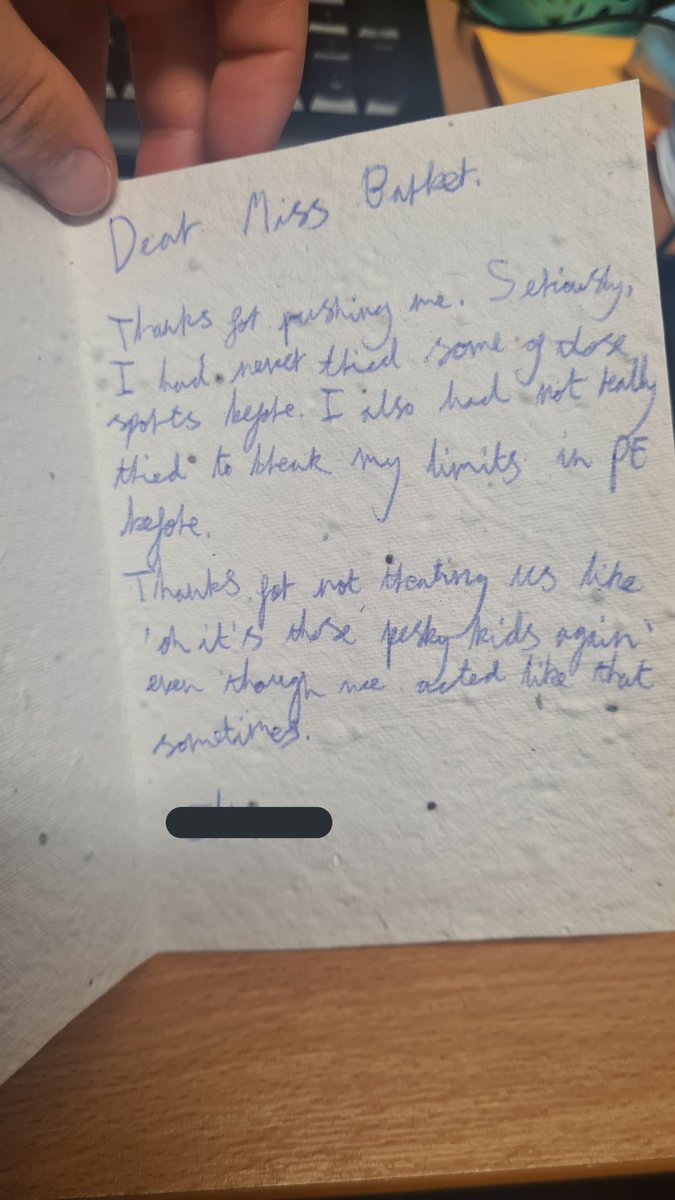 Dear Miss Barket.
Thanks for pushing me. Seriously,
I had never tried some of those
sports before. I also had not really
tried to break my limits in PE
before.
Thanks for not treating us like
'oh it's those pesky kids again'
even though we acted like that
sometimes.